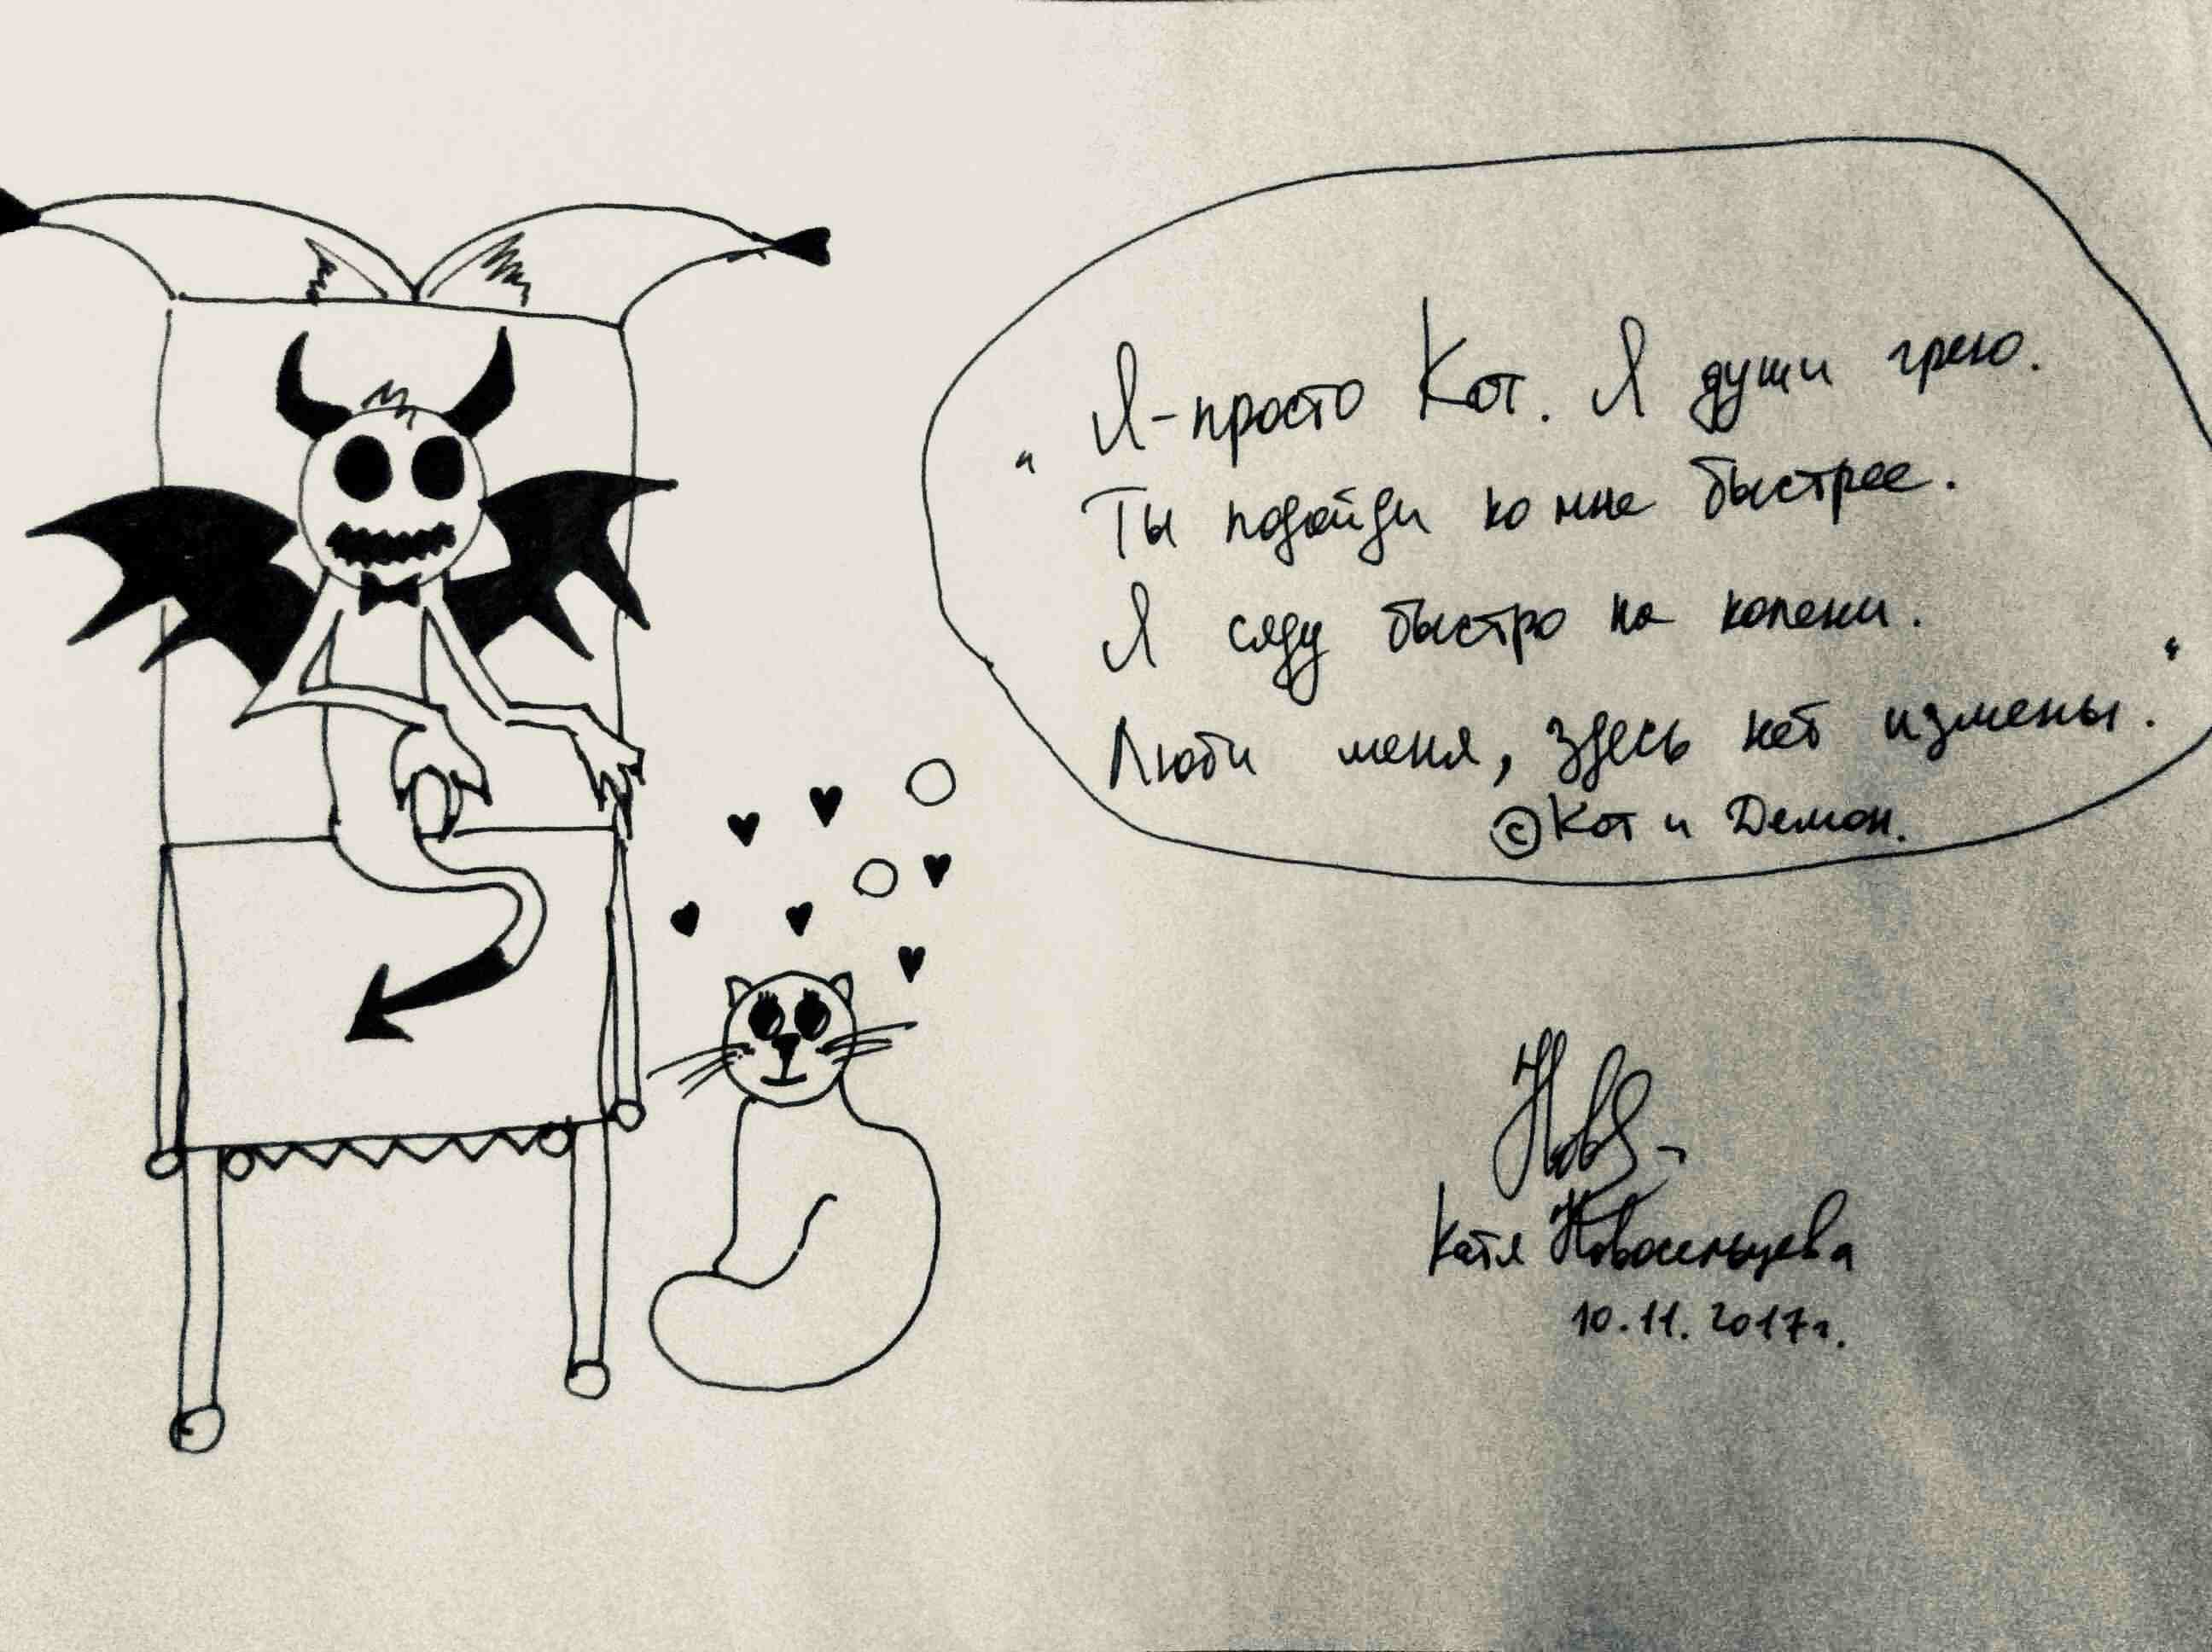 "Я - просто Кот. Я души грею.
Ты подойди ко мне быстрее.
Я сяду быстро на колени.
Люби меня, здесь нет измены."
© Кот и Демон.
Нов
Катя Новосельцева
10.11.2017г.